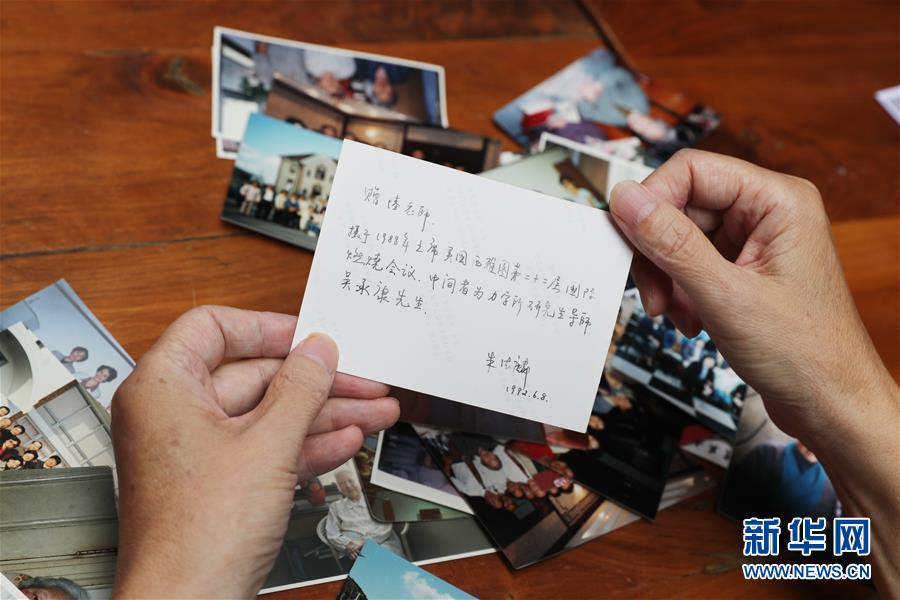 赠陆老师.
摄于1988年出席美国西雅图第二十二届国际
燃烧会议.中间者为力学所研究生导师
吴承康先生.
朱德麟
1992.6.8.
新华网
WWW.NEWS.CN